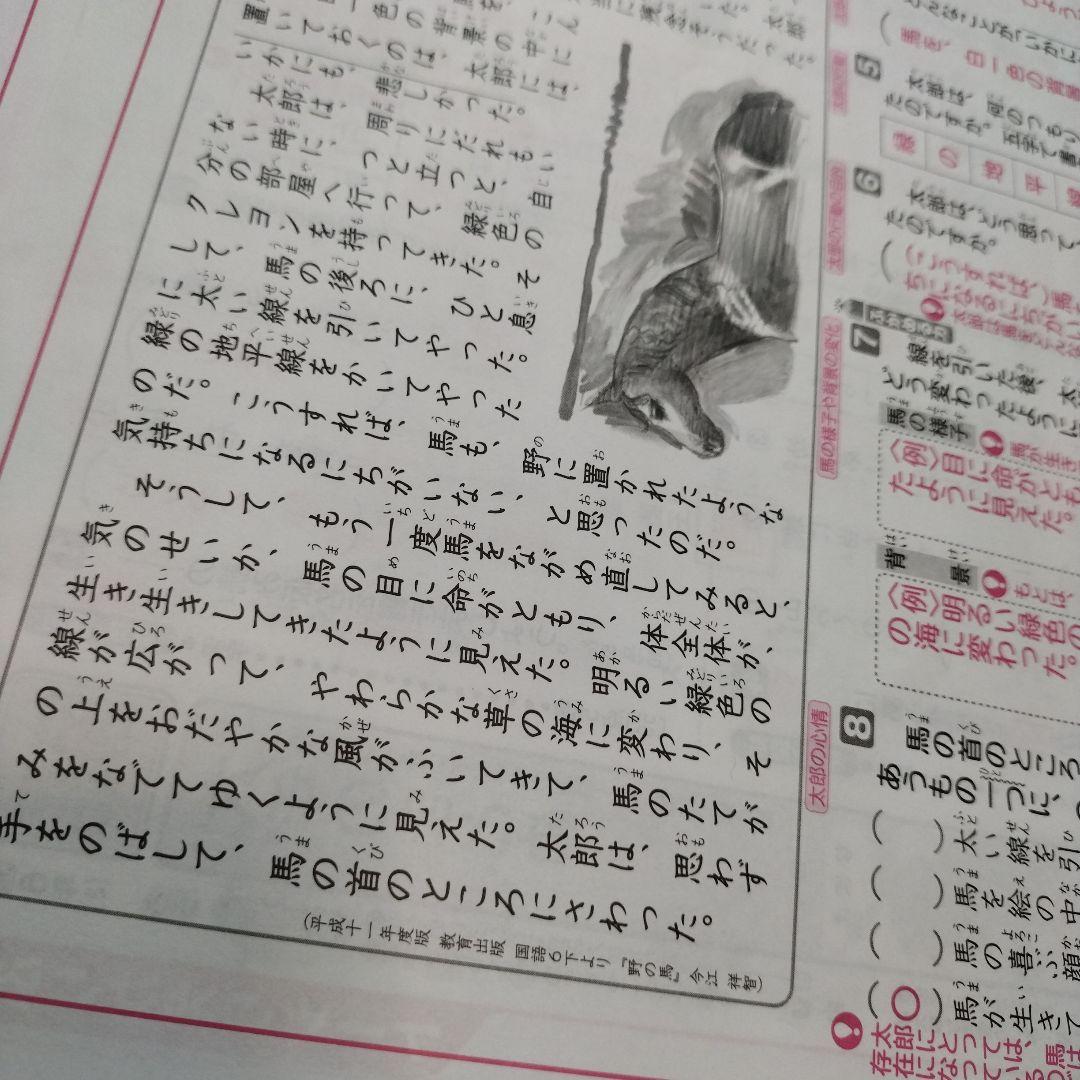 一色の背景の中に
太郎には、
置いておくのは、
いかにも、悲しかった。
太郎は、周りにだれも
ない時に、つっと立つと、
分の部屋へ行って、緑色の
クレヨンを持ってきた。
して、馬の後ろに、ひと息
に太い線を引いてやった。
緑の地平線をかいてやった
のだ。
こうすれば、馬も、野に置かれたような
気持ちになるにちがいない、と思ったのだ。
そうして、もう一度馬をながめ直してみると、
気のせいか、馬の目に命がともり、体全体が、
生き生きしてきたように見えた。明るい緑色の
線が広がって、やわらかな草の海に変わり、そ
の上をおだやかな風がふいてきて、馬のたてが
みをなでてゆくように見えた。太郎は、思わず
手をのばして、馬の首のところにさわった。
(平成十一年度版 教育出版 国語6下より 「野の馬」 今江 祥智)
馬を、白一色の背景
5
太郎は、何のつもり
たのですか。五字で書
緑の地平線
6
太郎は、どう思って、
たのですか。
こうすれば、馬
ちになるにちがい
馬の様子や背景の変化
7
線を引いた後、太
どう変わったように
馬の様子
〈例〉目に命がとも
たように見えた。
背景
〈例〉明るい緑色の
の海に変わった。
太郎の心情
8
馬の首のところ
あうもの一つに、
( )太い線を引
( )馬を絵の中
( )馬の喜ぶ顔
(○)馬が生きて
太郎にとっては、
存在になって